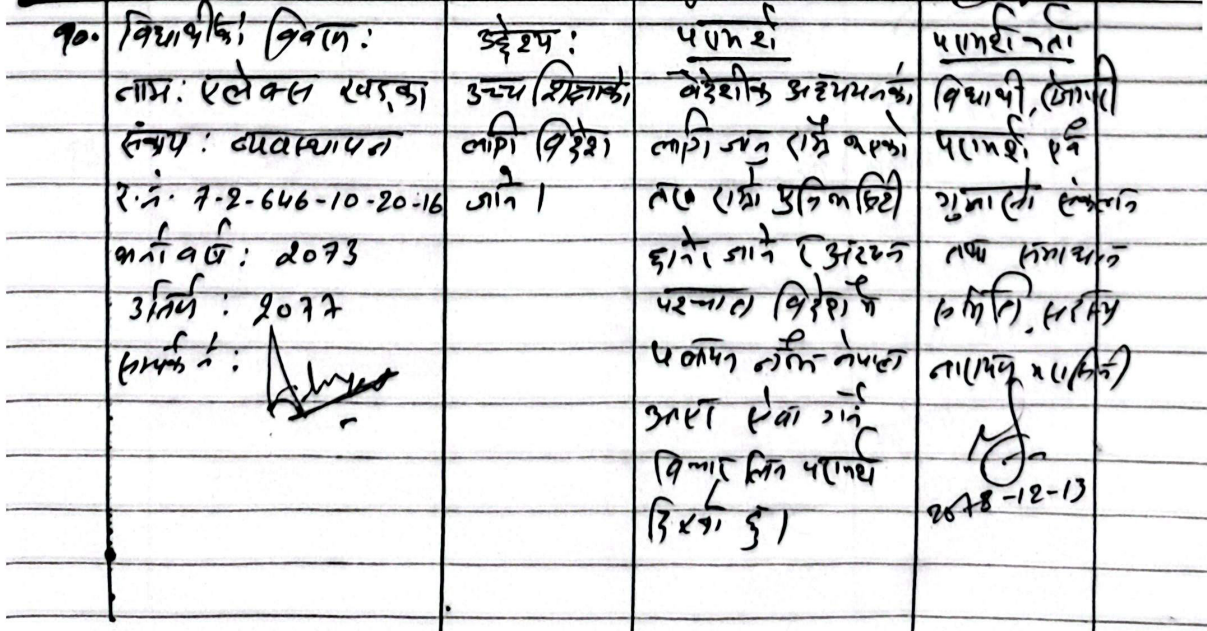 १०. विद्यार्थीको विवरण:
नाम: एलेक्स खड्का
संकाय: व्यवस्थापन
र.नं. 7-2-646-10-20-16
भर्ना वर्ष: 2073
उतिर्ण: 2077
सम्पर्क नं:
उद्देश्य:
उच्च शिक्षाको
लागि विदेश
जाने।
परामर्श
वैदेशीक अध्ययनको
लागि जानु राम्रै भएको
राम्रो युनिभर्सिटी
जाने र अध्ययन
पश्चात विदेशमै
पलायन नभै नेपाल
आएर सेवा गर्ने
विचार लिन परामर्श
दिएको छु।
परामर्शदाता
विद्यार्थी, रोजगारी
परामर्श एवं
गुनासो संकलन
तथा समाधान
समिति, सदस्य
नारायण
2078-12-13